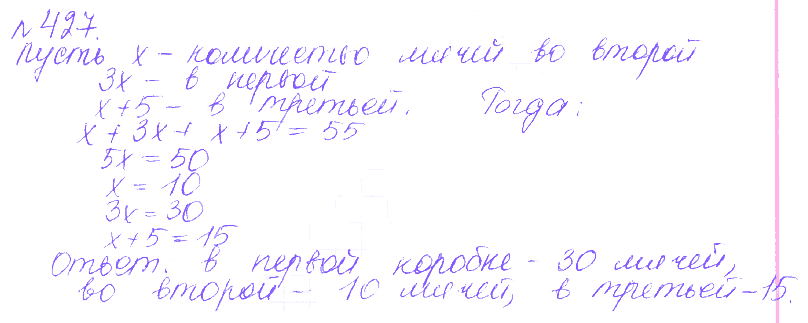 № 427.
Пусть x – количество мячей во второй
3x – в первой
x+5 – в третьей. Тогда:
x + 3x + x+5 = 55
5x = 50
x = 10
3x = 30
x+5 = 15
Ответ. в первой коробке - 30 мячей,
во второй – 10 мячей, в третьей – 15.